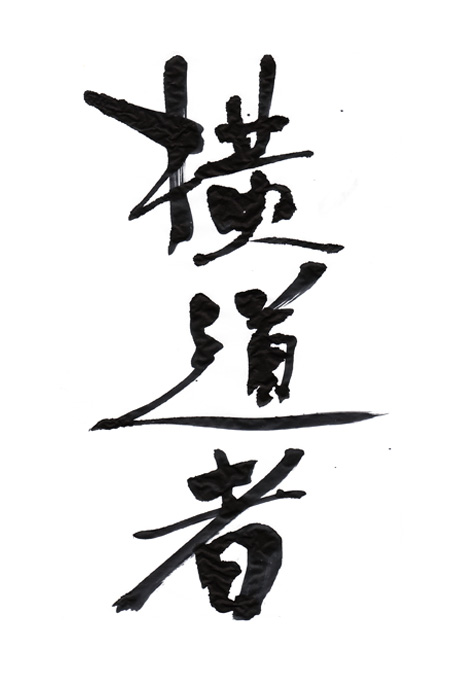 横道者